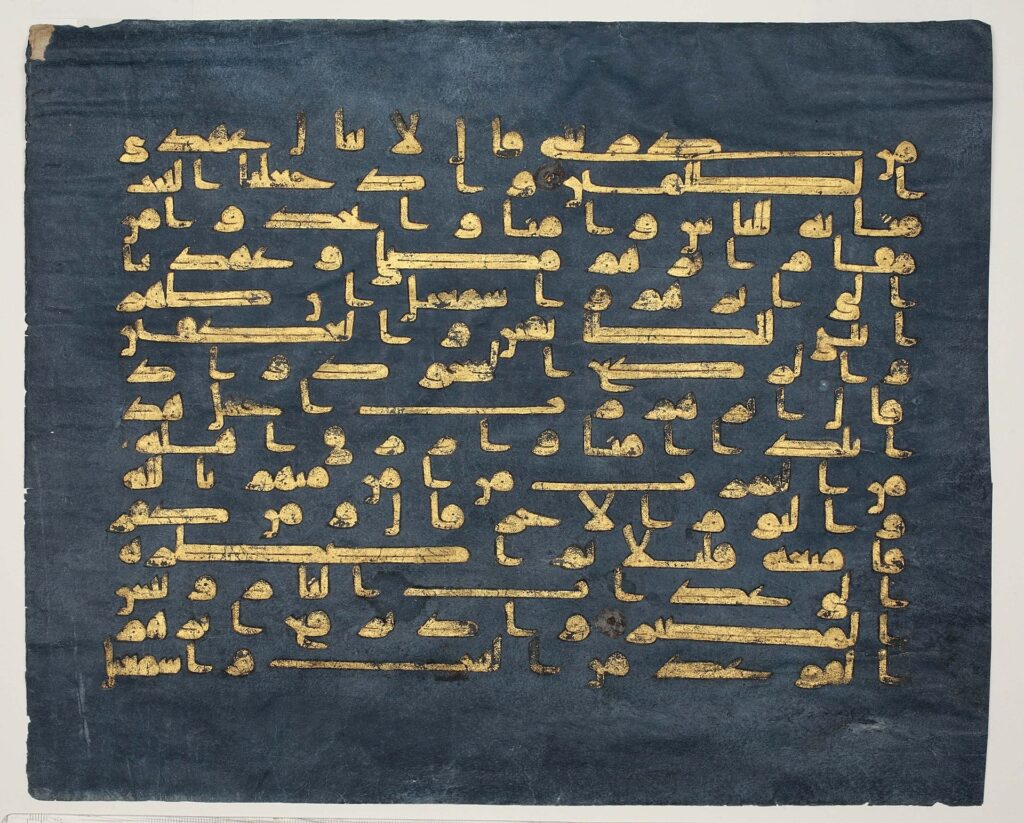 من ذريتي قال لا ينال عهدي
الظلمين واذ جعلنا البيت
مثابه للناس وامنا واتخذوا من
مقام ابرهم مصلى وعهدنا
الى ابرهم واسمعيل ان طهر
ا بيتي للطيفين والعكفين
والركع السجود واذ
قال ابرهم رب اجعل هذ
ا بلدا امنا وارزق اهله
من الثمرت من امن منهم بالله
واليوم الاخر قال ومن كفر
فامتعه قليلا ثم اضطره
الى عذاب النار وبيس
المصير واذ يرفع ابرهم
القوعد من البيت واسمعيل